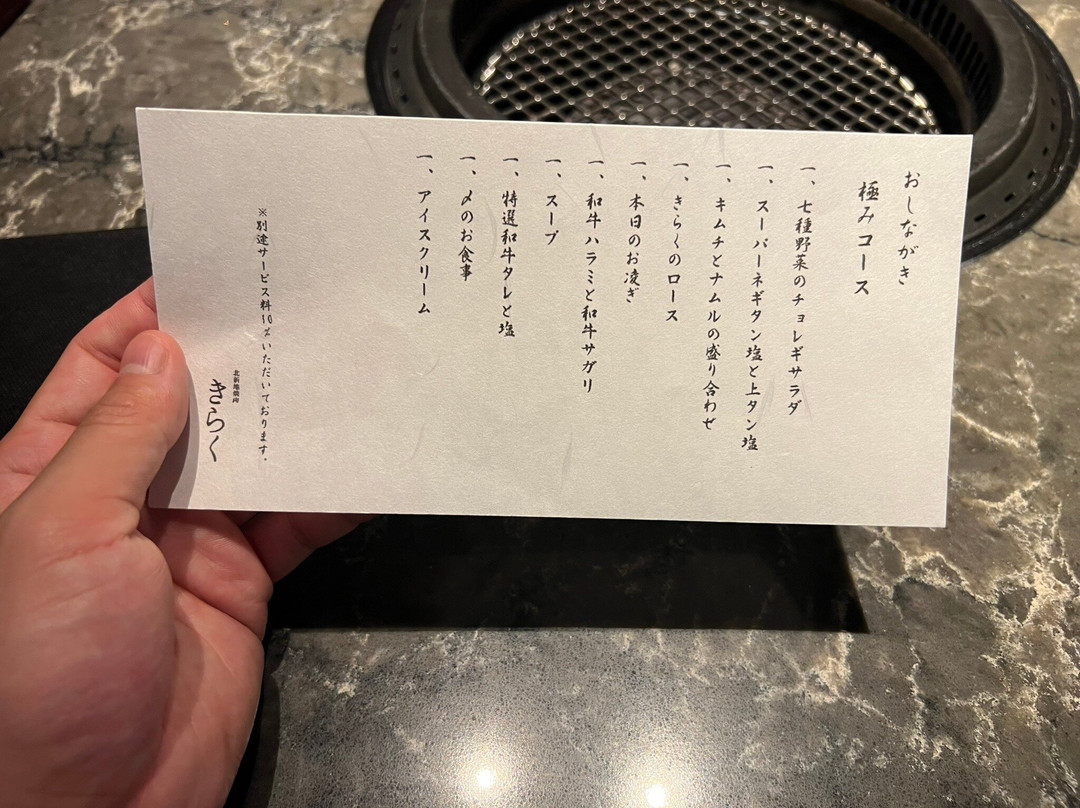 おしながき
極みコース
一、七種野菜のチョレギサラダ
一、スーパーネギタン塩と上タン塩
一、キムチとナムルの盛り合わせ
一、きらくのロース
一、本日のお凌ぎ
一、和牛ハラミと和牛サガリ
一、スープ
一、特選和牛タレと塩
一、〆のお食事
一、アイスクリーム
※別途サービス料10%いただいております。
北新地焼肉
きらく